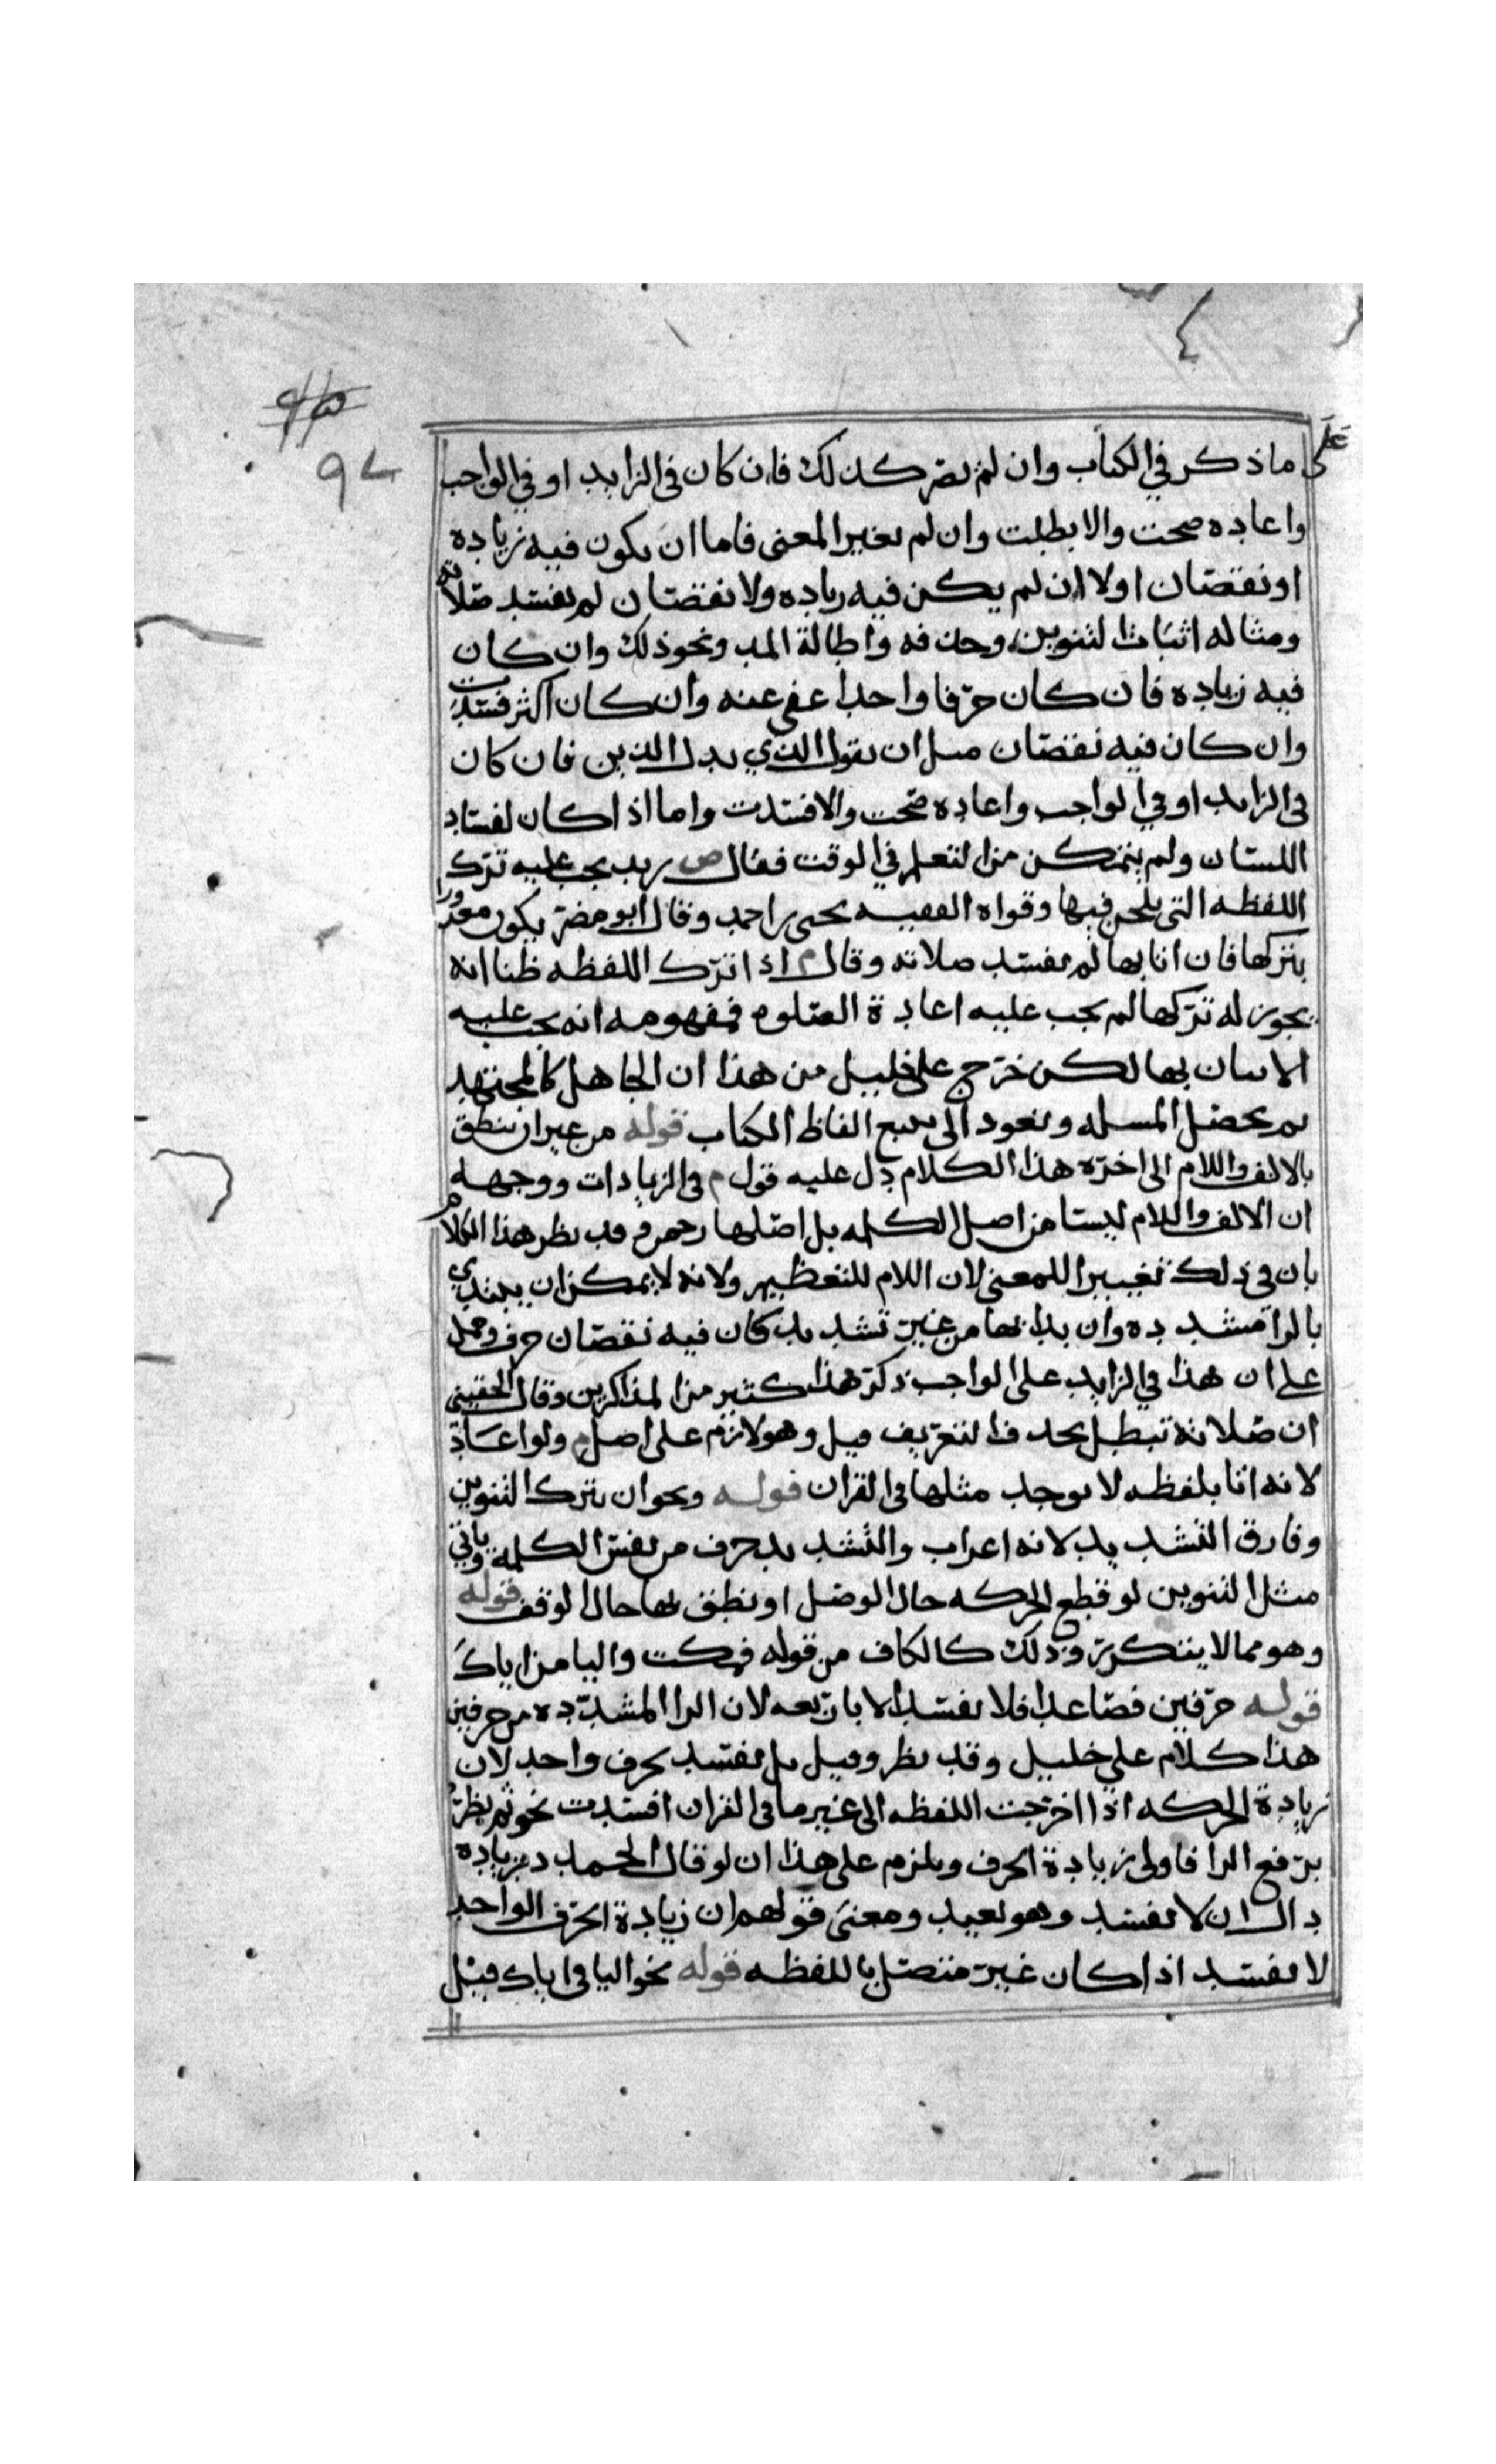 على ما ذكر في الكتاب وان لم يصر كذلك فان كان في الزايد او في الواجب
واعاده صحت والا بطلت وان لم يغير المعنى فاما ان يكون فيه زياده
او نقصان اولا ان لم يكن فيه زياده ولا نقصان لم يفسد صلاته
ومثاله اثبات التنوين وحذفه واطالة المد ونحو ذلك وان كان
فيه زياده فان كان حرفا واحدا عفي عنه وان كان اكثر فسدت
وان كان فيه نقصان مثل ان يقول الذي بدل الذين فان كان
في الزايد او في الواجب واعاده صحت والا فسدت واما اذا كان لفساد
اللسان ولم يتمكن من التعلم في الوقت فقال ص ريد يجب عليه ترك
اللفظه التي يلحن فيها وقواه الفقيه يحيى بن احمد وقال ابو مضر يكون معذورا
بتركها فان اتا بها لم يفسد صلاته وقال م اذا ترك اللفظه ظنا انه
يجوز له تركها لم يجب عليه اعادة الصلوه فمفهومه انه يجب عليه
الاتيان بها لكن خرج علي خليل من هذا ان الجاهل كالمجتهد
ثم يحصل المسله ونعود الى تتبع الفاظ الكتاب قوله من غير ان ينطق
بالالف واللام الى اخره هذا الكلام دل عليه قول م في الزيادات ووجهه
ان الالف واللام ليستا من اصل الكلمه بل اصلها رحمن وقد نظر هذا الكلام
بان في ذلك تغييرا للمعنى لان اللام للتعظيم ولانه لا يمكن ان يبتدي
بالرا مشدده وان بدا بها من غير تشديد كان فيه نقصان حرف وحمل
على ان هذا في الزايد على الواجب ذكر هذا كثير من المذاكرين وقال الحقيني
ان صلاته تبطل بحذف التعريف قيل وهو لازم على اصل م ولو اعاد
لانه اتا بلفظه لا يوجد مثلها في القران قوله ونحو ان يترك التنوين
وفارق التشديد لانه اعراب والتشديد حرف من نفس الكلمة وياتي
مثل التنوين لو قطع الحركه حال الوصل او نطق بها حال الوقف قوله
وهو مما لا يتكرر وذلك كالكاف من قوله فمكث واليا من اياك
قوله حرفين فصاعدا فلا يفسد الا باربعه لان الرا المشدده من حرفين
هذا كلام علي خليل وقد نظر وقيل بل يفسد بحرف واحد لان
زيادة الحركه اذا اخرجت اللفظه الى غير ما في القران افسدت نحو ثم نظر
برفع الرا فاولى زيادة الحرف ويلزم على هذا ان لو قال الحمد د بزياده
دال ان لا يفسد وهو بعيد ومعنى قولهم ان زيادة الحرف الواحد
لا يفسد اذا كان غير متصل باللفظه قوله نحو اليا في اياك قيل